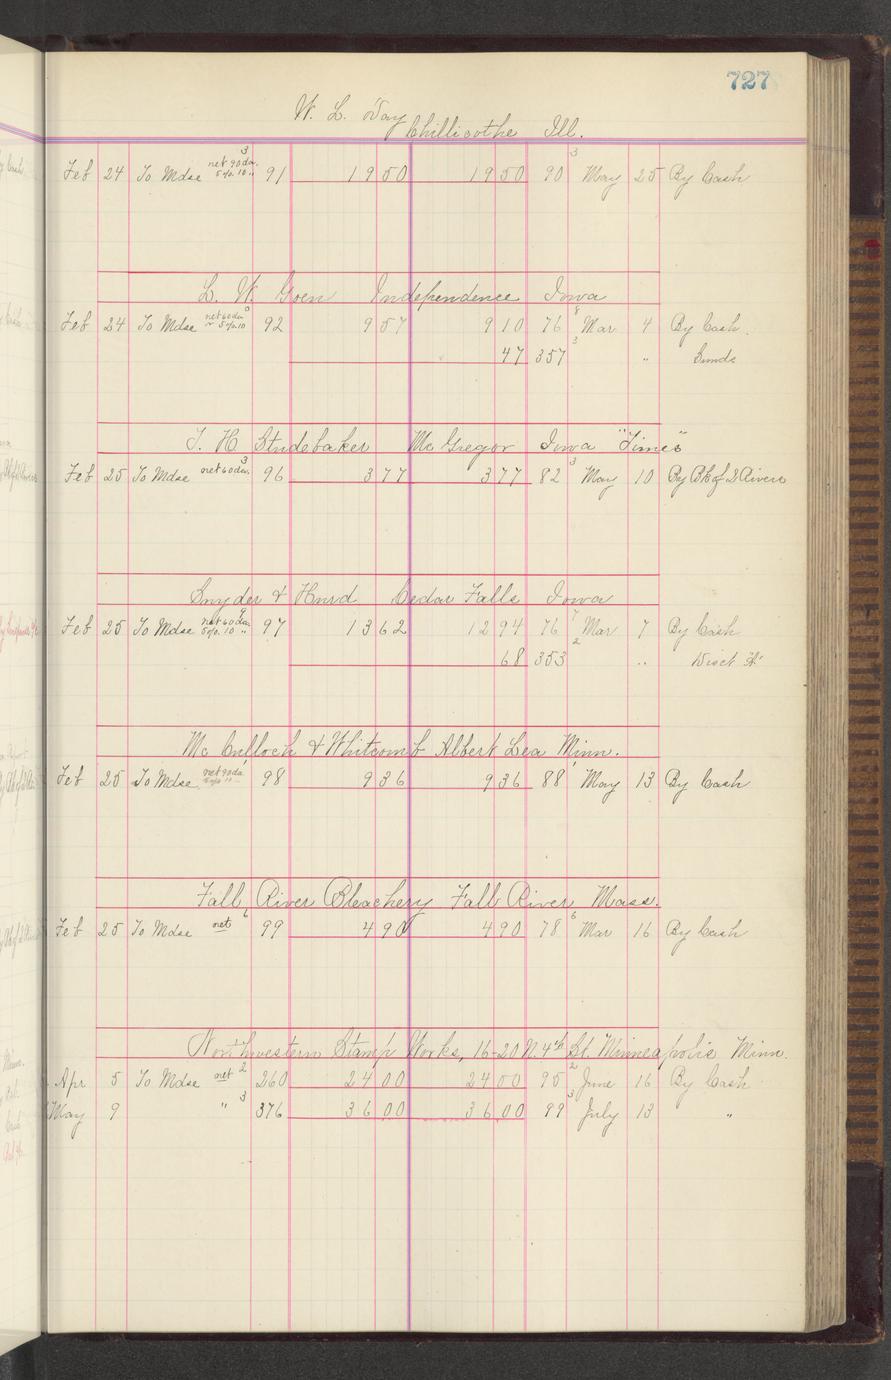 727
W. L. Day
Chillicothe Ill.
Feb 24 To Mdse net 90 da. 3 5% 10 " 91 1950 1950 90 3 May 25 By Cash
L. W. Goen Independence Iowa
Feb 24 To Mdse net 60 da 8 or 5% 10 92 957 910 76 8 Mar 4 By Cash.
47 357 3 " Sunds
T. H. Studebaker McGregor Iowa "Times"
Feb 25 To Mdse net 60 da. 3 96 377 377 82 3 May 10 By Bk of 2 Rivers
Snyder & Hurd Cedar Falls Iowa
Feb 25 To Mdse net 60 da 9 5% 10 " 97 1362 1294 76 7 Mar 7 By Cash
68 353 2 " Disct "A"
McCulloch & Whitcomb Albert Lea Minn.
Feb 25 To Mdse net 90 da 5% 10 " 98 936 936 88 May 13 By Cash
Fall River Bleachery Fall River Mass.
Feb 25 To Mdse net 6 99 490 490 78 6 Mar 16 By Cash
Northwestern Stamp Works, 16-20 N. 4th St. Minneapolis Minn.
Apr 5 To Mdse net 2 260 2400 2400 95 2 June 16 By Cash
May 9 " 3 376 3600 3600 99 3 July 13 "